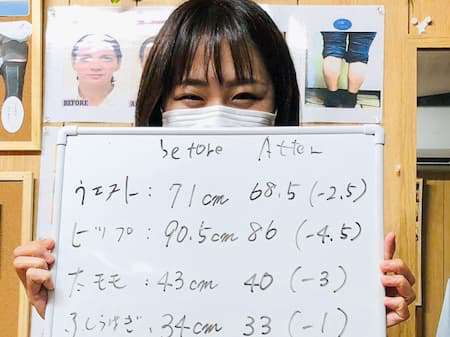 BEFORE
before After
ウエスト：71cm 68.5 (-2.5)
ヒップ：90.5cm 86 (-4.5)
太モモ：43cm 40 (-3)
ふくらはぎ：34cm 33 (-1)